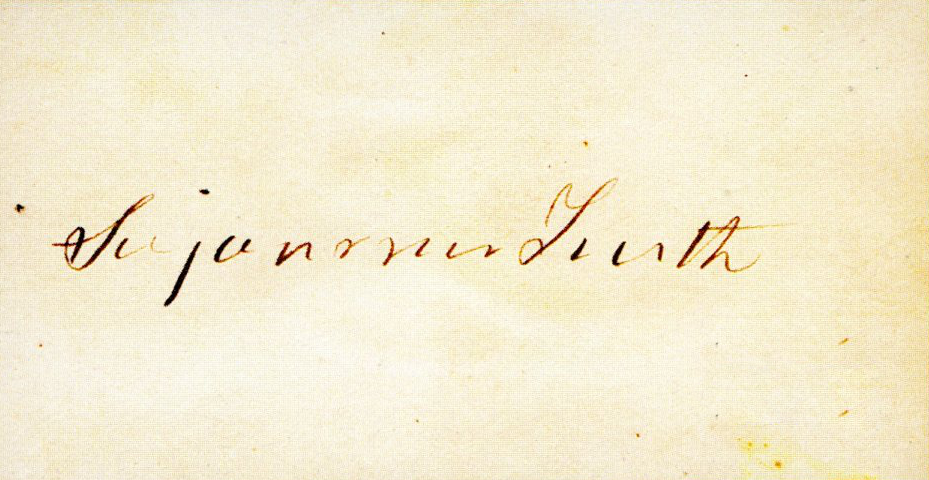 Sojourner Truth